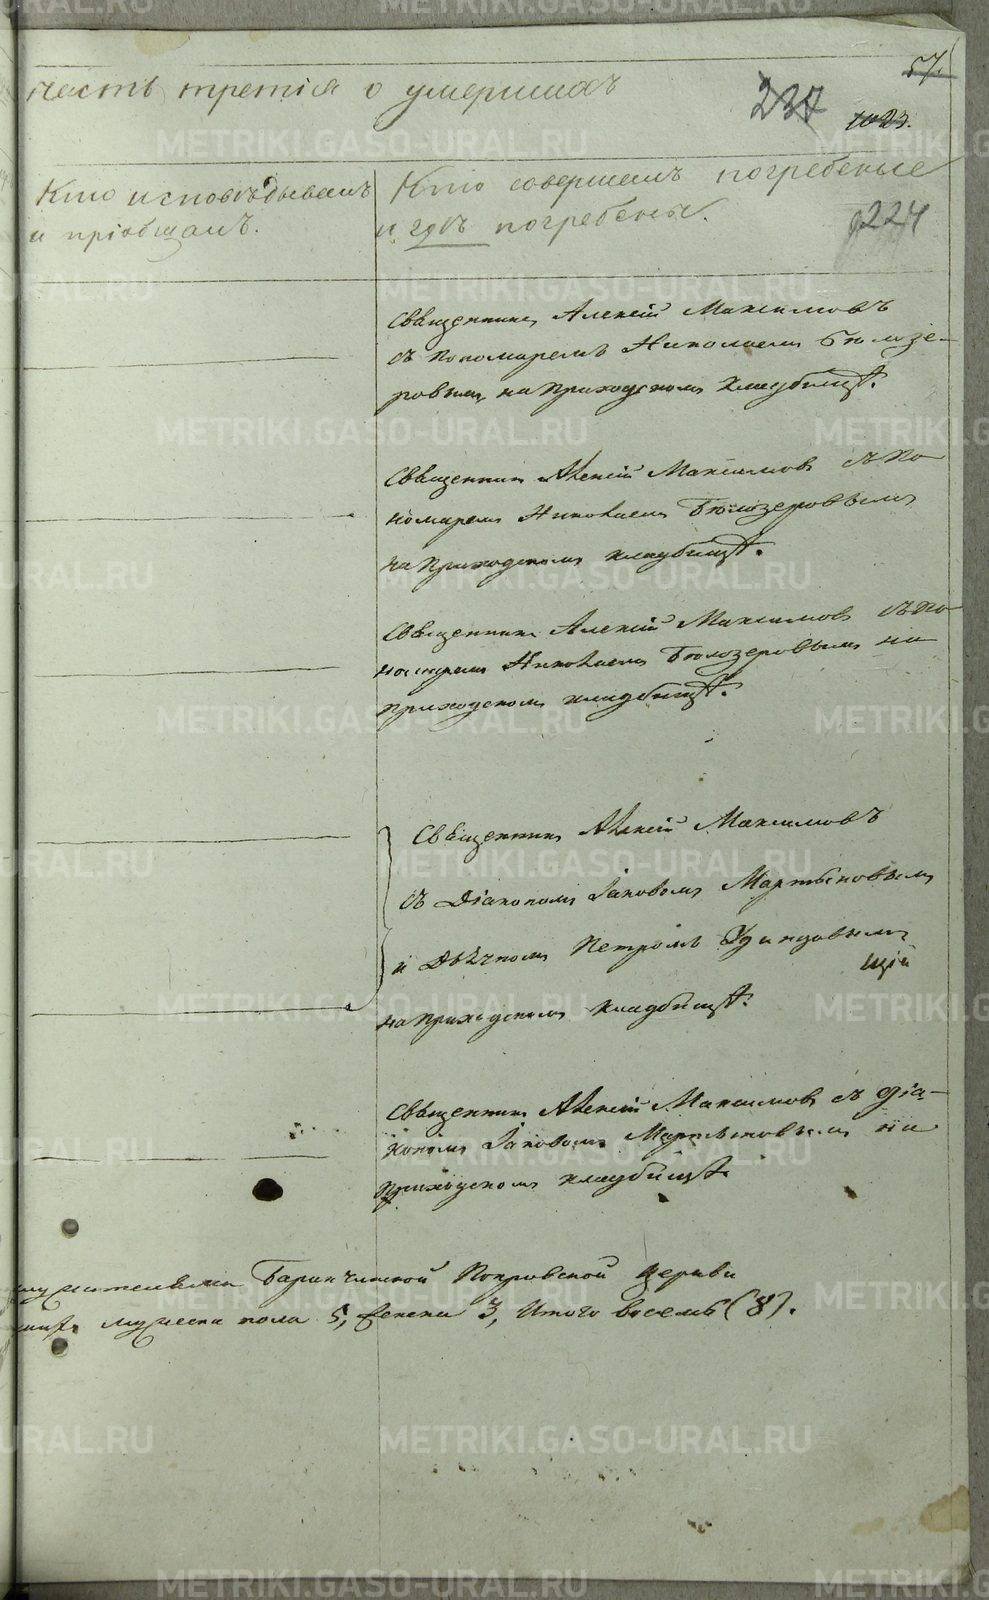 57.
часть третія о умершихъ
237
1023.
Кто исповѣдывалъ
и пріобщалъ.
Кто совершалъ погребеніе
и гдѣ погребены.
224
Священникъ Алексій Максимовъ
съ пономаремъ Николаемъ Бѣлозе-
ровымъ на приходскомъ кладбищѣ.
Священникъ Алексій Максимовъ съ по
номаремъ Николаемъ Бѣлозеровымъ
на приходскомъ кладбищѣ.
Священникъ Алексій Максимовъ съ по
номаремъ Николаемъ Бѣлозеровымъ на
приходскомъ кладбищѣ.
Священникъ Алексій Максимовъ
съ Діакономъ Іаковомъ Мартыновымъ
и Дьячкомъ Петромъ Удинцовымъ
на приходскомъ кладбищѣ.
Священникъ Алексій Максимовъ съ діа-
кономъ Іаковомъ Мартыновымъ на
приходскомъ кладбищѣ.
Баранчинской Покровской церкви
мужеска пола 5, женска 3, Итого восемь (8).
METRIKI.GASO-URAL.RU